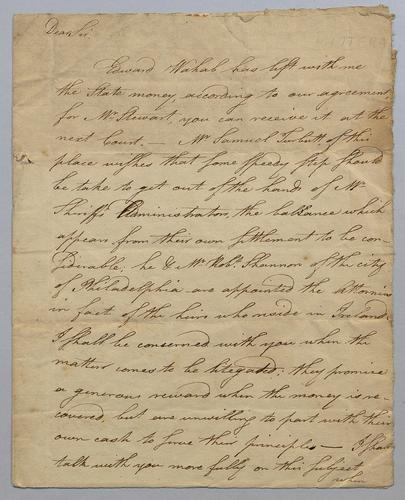 Dear Sir.
Edward Wahab has left with me
the State money, according to our agreement
for Mr Stewart, you can receive it at the
next Court. — Mr Samuel Turbutt of this
place wishes that some speedy step should
be take to get out of the hands of Mr
Administrator, the ballance which
appears from their own settlement to be con-
siderable, he & Mr Robt. Shannon of the city
of Philadelphia are appointed the Attornies
in fact of the heirs who reside in Ireland
I shall be concerned with you when the
matter comes to be litegated. they promise
a generous reward when the money is re-
covered, but are unwilling to part with their
own cash to serve their principles — I shall
talk with you more fully on this subject
when